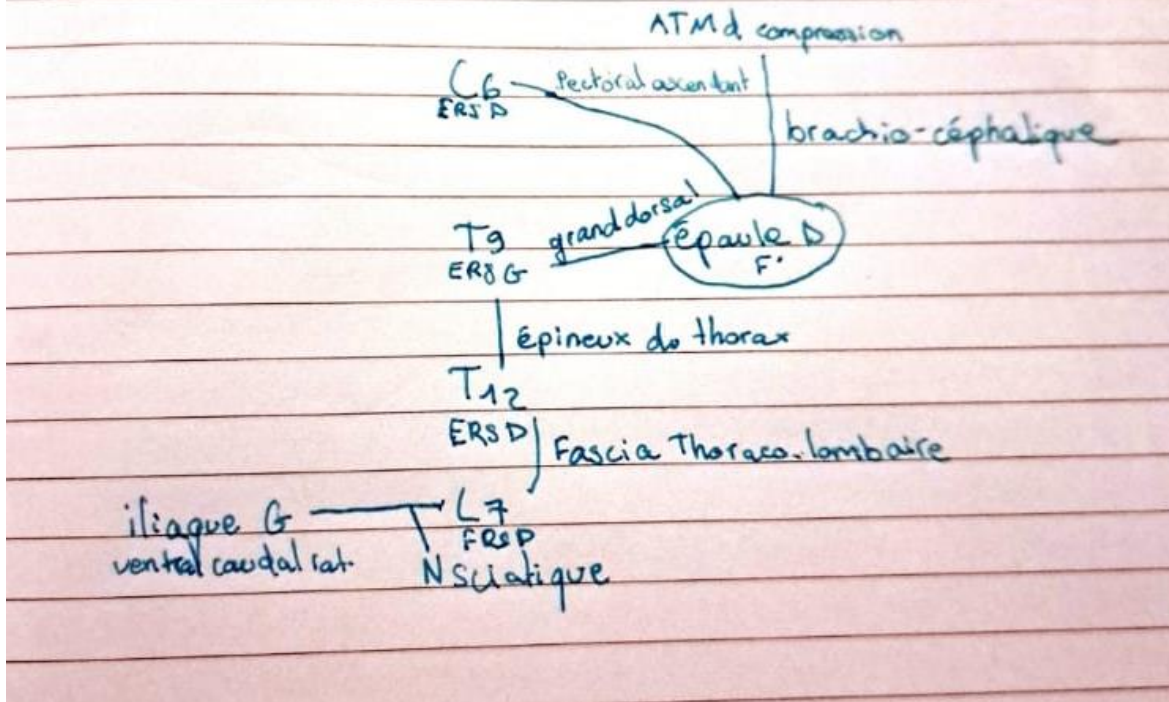 ATMd compression
C6 Pectoral ascendant
ERS D
brachio-céphalique
T9 grand dorsal épaule D
ERS G F.
épineux do thorax
T12
ERS D Fascia Thoraco-lombaire
iliaque G L7
ventral caudal lat. FRS D
N sciatique